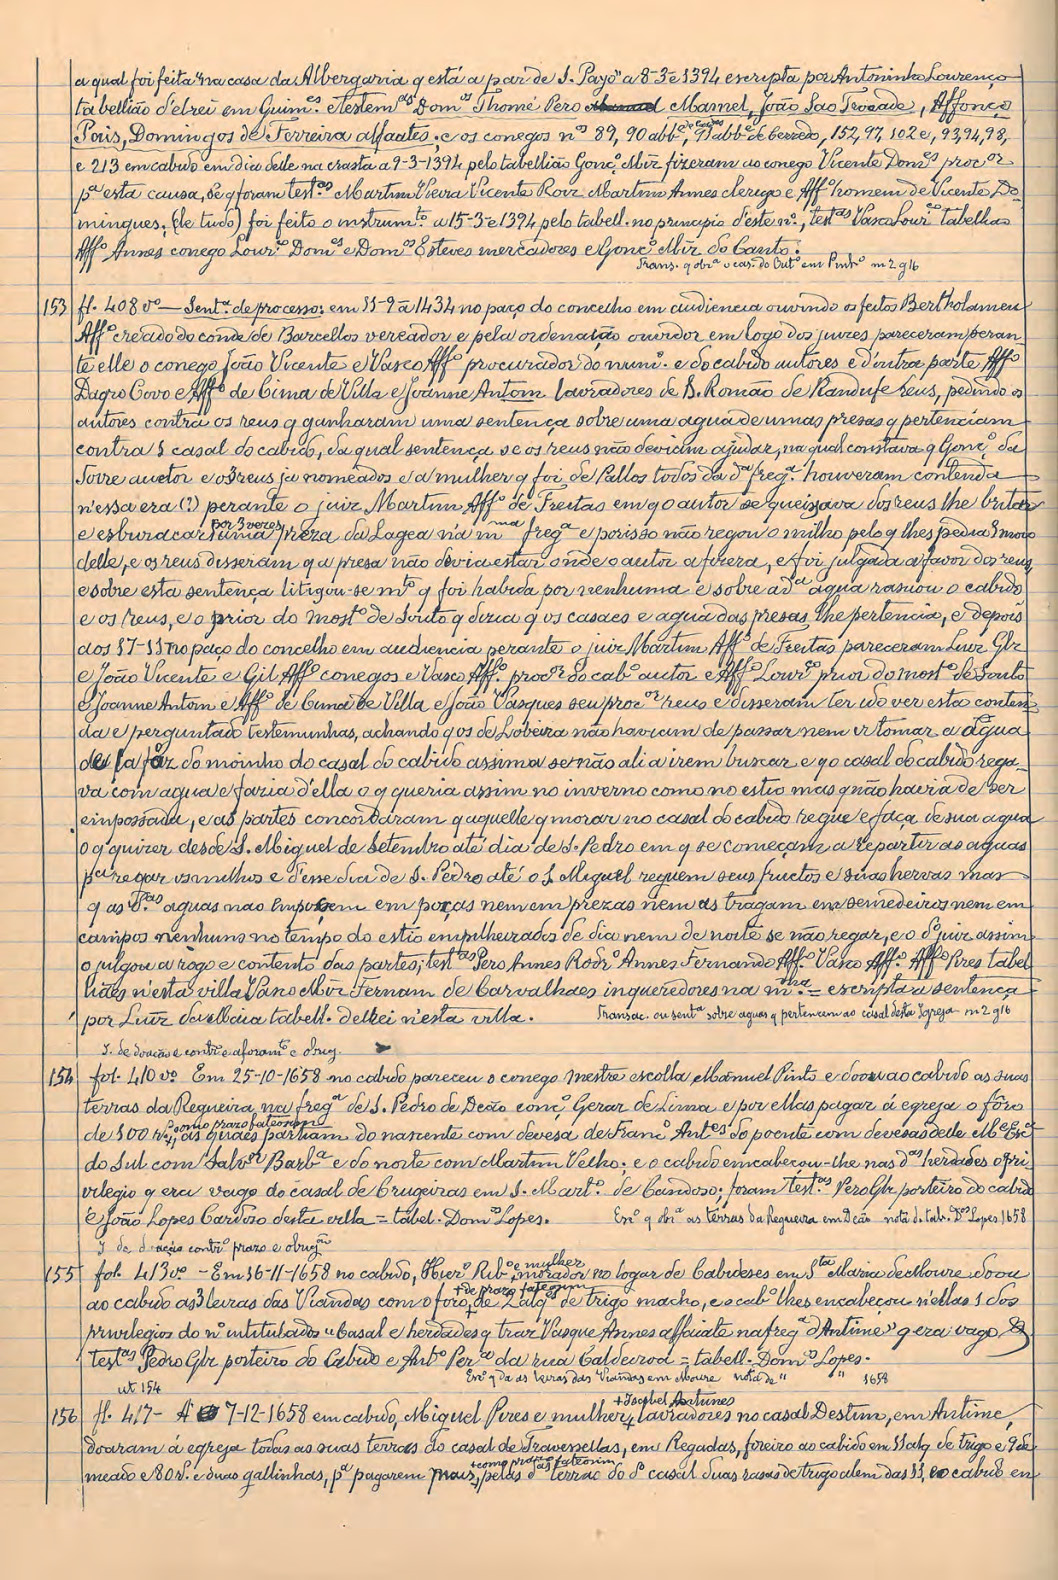 a qual foi feita na casa da Albergaria q está a par de S. Payo a 8-3-1394 escripta por Antoninho Lourenço
tabellião d'elrei em Guim.es e testem.as Dom.os Thomé Pero Mamel, João Sao Trocade, Affonço
Pais, Domingos de Ferreira alfaates; e os conegos n.os 89, 90 abb.e de cedros, 91 abb.e de Cerzedo, 152, 97, 102 e, 93, 94, 98,
e 213 em cabido em dia delle na crasta a 9-3-1394 pelo tabellião Gonç.o Miz fizeram ao conego Vicente Dom.es proc.or
p.a esta causa, de q foram test.as Martim Vieira Vicente Roiz Martim Annes clerigo e Aff.o homem de Vicente Do-
mingues; (de tudo) foi feito o instrum.to a 15-3-1394 pelo tabell. no principio d'este n.o, test.as Vasco Lour.ço tabellião
Aff.o Annes conego Lour.ço Dom.es e Dom.os Esteves mercadores e Gonç.o Miz do Canto.
Trans. q obr.a o cas. do Out.o em Pinh.o m 2 g 16
153 fl. 408 v.o — Sent.a de processo: em 11-9-1434 no paço do concelho em audiencia ouvindo os feitos Bertholameu
Aff.o creado do conde de Barcellos vereador e pela ordenação ouvidor em logo dos juizes pareceram peran-
te elle o conego João Vicente e Vasco Aff.o procurador do num. e do cabido autores e d'outra parte Aff.o
Dagro Covo e Aff.o de Cima de Villa e Joanne Antom lavradores de S. Romão de Rendufe reus, pedindo os
autores contra os reus q ganharam uma sentença sobre uma agua de umas presas q pertenciam
contra 1 casal do cabido, da qual sentença se os reus não deviam ajudar, na qual constava q Gonç.o da
Torre auctor e os reus ja nomeados e a mulher q foi de Pallos todos da d.a freg.a houveram contenda
n'essa era (?) perante o juiz Martim Aff.o de Freitas em q o autor se queixava dos reus lhe britar
e esburacar por 3 vezes uma preza da Lagea na m.ma freg.a e por isso não regou o milho pelo q lhes pedia 1 moio
delle, e os reus disseram q a presa não devia estar onde o autor a fizera, e foi julgada a favor dos reus,
e sobre esta sentença litigou-se m.to q foi habida por nenhuma e sobre a d.a agua rasuou o cabido
e os reus, e o prior do most.o de Souto q dizia q os casaes e agua das presas lhe pertencia, e depois
aos 17-11 no paço do concelho em audiencia perante o juiz Martim Aff.o de Freitas pareceram Luiz Glz
e João Vicente e Gil Aff.o conegos e Vasco Aff.o proc.or do cab.o autor e Aff.o Lour.ço prior do most.o de Souto
e Joanne Antom e Aff.o de Cima de Villa e João Vasques seu proc.or reus e disseram ter ido ver esta conten-
da e perguntado testemunhas, achando q os de Lobeira não haviam de passar nem ir tomar a agua
de la foz do moinho do casal do cabido assima se não ali a irem buscar e q o casal do cabido rega-
va com agua e fazia d'ella o q queria assim no inverno como no estio mas q não havia de ser
empossada, e as partes concordaram q aquelle q morar no casal do cabido regue e faça de sua agua
o q quizer desde S. Miguel de setembro até dia de S. Pedro em q se começam a repartir as aguas
p.a regar os milhos e d'esse dia de S. Pedro até o S. Miguel reguem seus fructos e suas hervas mas
q as d.as aguas nao empossem em poças nem em prezas nem as tragam em semedeiros nem em
campos nenhuns no tempo do estio empilheiradas de dia nem de noite se não regar, e o d.o juiz assim
o julgou a rogo e contento das partes; test.as Pero Annes Rodr.o Annes Fernando Aff.o Vasco Aff.o Aff.o Pires tabel-
liães n'esta villa Vasco Miz Fernam de Carvalhaes inqueredores na m.ma = escripta a sentença
por Luiz da Maia tabell. delrei n'esta villa.
Transac. ou sent.a sobre aguas q pertencem ao casal desta Igreja m 2 g 16
I. de doação e contr.o e aforam.to e obrig.
154 fol. 410 v.o Em 25-10-1658 no cabido pareceu o conego mestre escolla Manuel Pinto e doou ao cabido as suas
terras da Regueira na freg.a de S. Pedro de Deão conc.o Gerar de Lima e por ellas pagar á egreja o fôro
de 100 r.s, como prazo fateosim as quaes partiam do nascente com devesa de Franc.o Ant.es do poente com devesas delle M.e Esc.a
do Sul com Salv.or Barb.a e do norte com Martim Velho; e o cabido emcabeçou-lhe nas d.as herdades o pri-
vilegio q era vago do casal de Crugeiras em S. Mart.o de Candoso; foram test.as Pero Glz porteiro do cabido
e João Lopes Cardoso desta villa = tabel. Dom.os Lopes.
Esc.a q obr.a as terras da Regueira em Deão nota d. tab. D.os Lopes 1658
I de doação contr.o prazo e obrig.am
155 fol. 413 v.o — Em 16-11-1658 no cabido, Hier.o Rib.o e mulher, morador no logar de Cabdeses em S.ta Maria de Moure doou
ao cabido as 3 leiras das Viandas com o foro, + de prazo fateosim de 2 alq.s de trigo macho, e o cab.o lhes encabeçou n'ellas 1 dos
privilegios do n.o intitulados "Casal e herdades q traz Vasque Annes alfaiate na freg.a d'Antime" q era vago
test.as Pedro Glz porteiro do Cabido e Ant.o Per.a da rua Caldeiroa = tabell. Dom.os Lopes.
Esc.a q da as leiras das Viandas em Moure nota de " " 1658
ut 154
156 fl. 417 - A 7-12-1658 em cabido, Miguel Pires e mulher + Isabel Antunes lavradores no casal Destim, em Antime,
doaram á egreja todas as suas terras do casal de Travessellas, em Regadas, foreiro ao cabido em 11 alq. de trigo e 9 de
meado e 80 r.s e duas gallinhas, p.a pagarem mais, + como prazo fateosim pelas d.as terras do d.o casal duas rasas de trigo alem das 11, e o cabido en